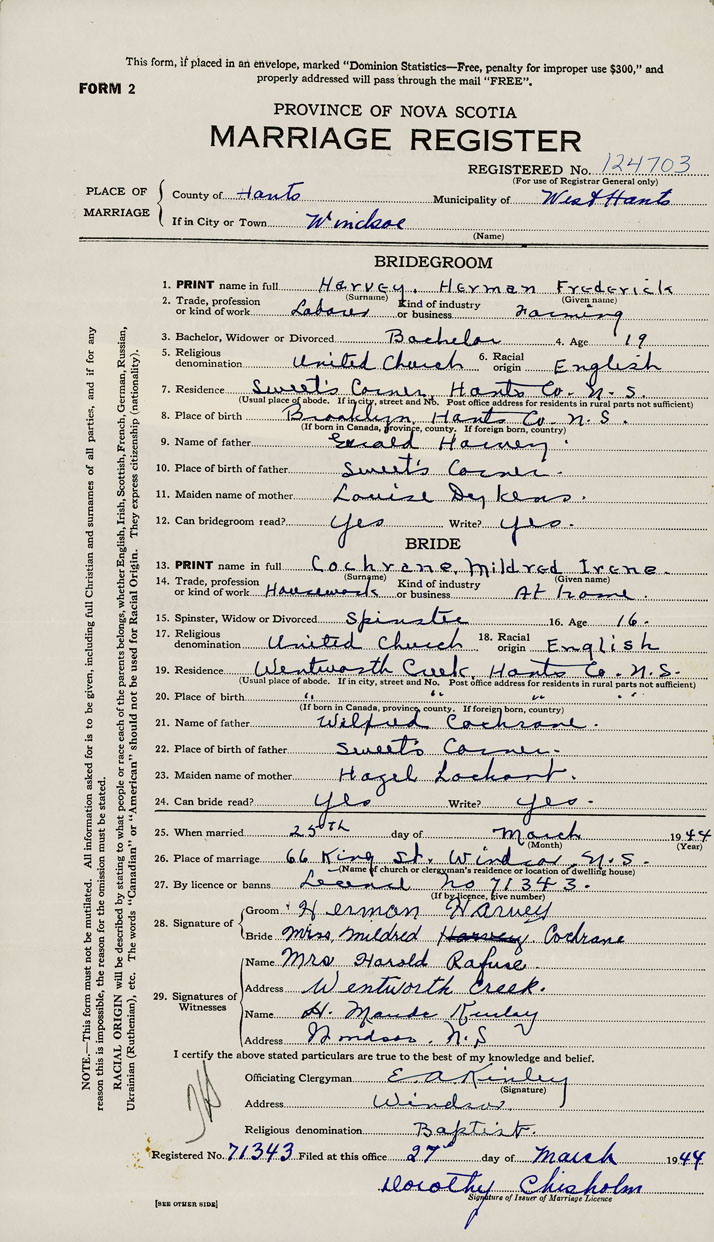 This form, if placed in an envelope, marked "Dominion Statistics—Free, penalty for improper use $300," and
properly addressed will pass through the mail "FREE".
FORM 2
PROVINCE OF NOVA SCOTIA
MARRIAGE REGISTER
REGISTERED No. 124703
(For use of Registrar General only)
PLACE OF MARRIAGE
County of Hants Municipality of West Hants
If in City or Town Windsor
(Name)
BRIDEGROOM
1. PRINT name in full Harvey, Herman Frederick
(Surname) (Given name)
2. Trade, profession or kind of work Laborer Kind of industry or business Farming
3. Bachelor, Widower or Divorced Bachelor 4. Age 19
5. Religious denomination United Church 6. Racial origin English
7. Residence Sweet's Corner, Hants Co. N.S.
(Usual place of abode. If in city, street and No. Post office address for residents in rural parts not sufficient)
8. Place of birth Brooklyn, Hants Co. N.S.
(If born in Canada, province, county. If foreign born, country)
9. Name of father Harvey
10. Place of birth of father Sweet's Corner.
11. Maiden name of mother Louise Dykens.
12. Can bridegroom read? Yes Write? Yes.
BRIDE
13. PRINT name in full Cochrane, Mildred Irene.
(Surname) (Given name)
14. Trade, profession or kind of work Housework Kind of industry or business At home.
15. Spinster, Widow or Divorced Spinster 16. Age 16.
17. Religious denomination United Church 18. Racial origin English
19. Residence Wentworth Creek, Hants Co. N.S.
(Usual place of abode. If in city, street and No. Post office address for residents in rural parts not sufficient)
20. Place of birth " " " "
(If born in Canada, province, county. If foreign born, country)
21. Name of father Wilfred Cochrane.
22. Place of birth of father Sweet's Corner.
23. Maiden name of mother Hazel Lockhart.
24. Can bride read? Yes Write? Yes.
25. When married 25th day of March 1944
(Month) (Year)
26. Place of marriage 66 King St. Windsor, N.S.
(Name of church or clergyman's residence or location of dwelling house)
27. By licence or banns License No 71343.
(If by licence, give number)
28. Signature of
Groom Herman Harvey
Bride Miss Mildred Harvey Cochrane
29. Signatures of Witnesses
Name Mrs Harold Rafuse
Address Wentworth Creek.
Name H. Maude Kinley
Address Windsor. N.S
I certify the above stated particulars are true to the best of my knowledge and belief.
Officiating Clergyman E. A. Kinley
(Signature)
Address Windsor
Religious denomination Baptist.
Registered No. 71343 Filed at this office 27 day of March 1944
Dorothy Chisholm
Signature of Issuer of Marriage Licence
[SEE OTHER SIDE]
NOTE.—This form must not be mutilated. All information asked for is to be given, including full Christian and surnames of all parties, and if for any
reason this is impossible, the reason for the omission must be stated.
RACIAL ORIGIN will be described by stating to what people or race each of the parents belongs, whether English, Irish, Scottish, French, German, Russian,
Ukrainian (Ruthenian), etc. The words "Canadian" or "American" should not be used for Racial Origin. They express citizenship (nationality).